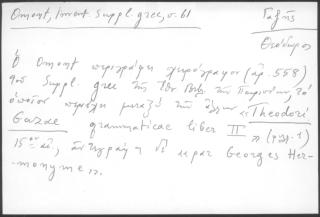 Omont, Invent. Suppl. grec, σ. 61
Γαζῆς
Θεόδωρος
Ὁ Omont περιγράφει χειρόγραφον (ἀρ. 558)
τοῦ Suppl. grec τῆς Ἐθν. Βιβλ. τῶν Παρισίων, τὸ
ὁποῖον περιέχει μεταξὺ τῶν ἄλλων « Theodori
Gazae grammaticae liber II » (φφ. 1)
15ου αἰ., ἀντιγραφή τοῦ κ. Georges Her-
monyme ».